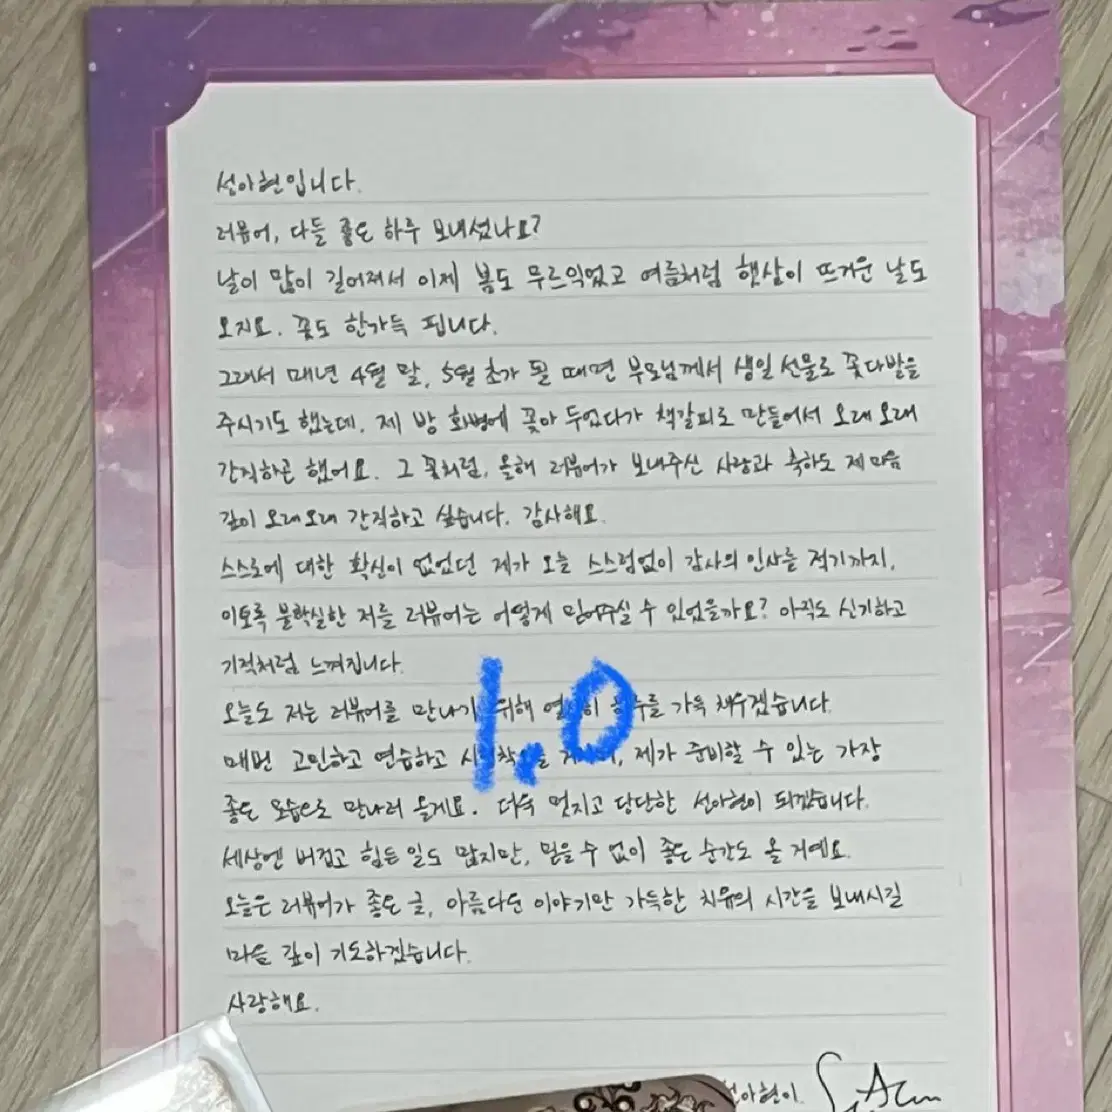 선아현입니다.
러뷰어, 다들 좋은 하루 보내셨나요?
날이 많이 길어져서 이제 봄도 무르익었고 여름처럼 햇살이 뜨거운 날도
오지요. 꽃도 한가득 핍니다.
그래서 매년 4월 말, 5월 초가 될 때면 부모님께서 생일 선물로 꽃다발을
주시기도 했는데, 제 방 화병에 꽂아 두었다가 책갈피로 만들어서 오래오래
간직하곤 했어요. 그 꽃처럼, 올해 러뷰어가 보내주신 사랑과 축하도 제 마음
깊이 오래오래 간직하고 싶습니다. 감사해요.
스스로에 대한 확신이 없었던 제가 오늘 스스럼없이 감사의 인사를 적기까지,
이토록 불확실한 저를 러뷰어는 어떻게 믿어주실 수 있었을까요? 아직도 신기하고
기적처럼 느껴집니다.
오늘도 저는 러뷰어를 만나기 위해 하루를 가득 채우겠습니다.
매번 고민하고 연습하고 제가 준비할 수 있는 가장
좋은 모습으로 만나러 올게요. 더욱 멋지고 당당한 선아현이 되겠습니다.
세상엔 버겁고 힘든 일도 많지만, 믿을 수 없이 좋은 순간도 올 거예요.
오늘은 러뷰어가 좋은 글, 아름다운 이야기만 가득한 치유의 시간을 보내시길
마음 깊이 기도하겠습니다.
사랑해요.
선아현이.
1.0